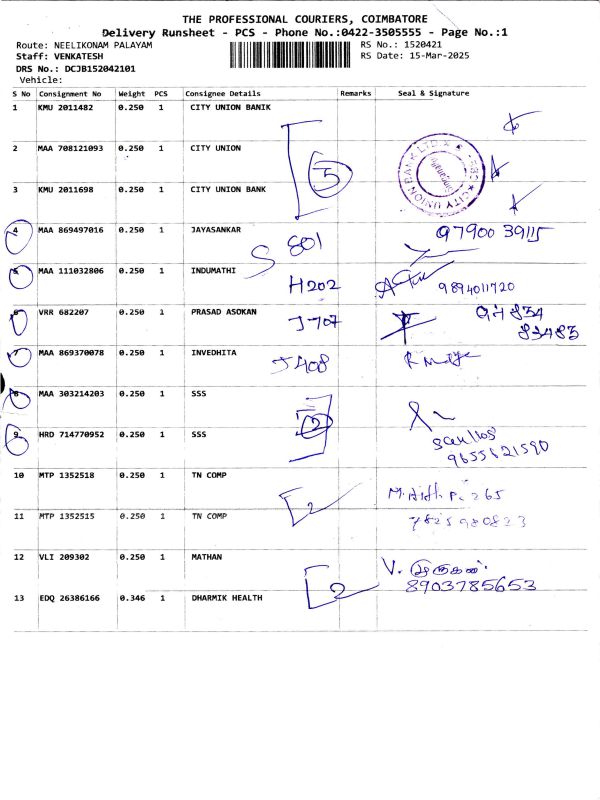 THE PROFESSIONAL COURIERS, COIMBATORE
Delivery Runsheet - PCS - Phone No.:0422-3505555 - Page No.:1
Route: NEELIKONAM PALAYAM RS No.: 1520421
Staff: VENKATESH RS Date: 15-Mar-2025
DRS No.: DCJB152042101
Vehicle:
S No Consignment No Weight PCS Consignee Details Remarks Seal & Signature
1 KMU 2011482 0.250 1 CITY UNION BANIK
2 MAA 708121093 0.250 1 CITY UNION
CITY UNION BANK LTD
3 KMU 2011698 0.250 1 CITY UNION BANK
4 MAA 869497016 0.250 1 JAYASANKAR S 801 97900 39115
5 MAA 111032806 0.250 1 INDUMATHI H202 9894011720
6 VRR 682207 0.250 1 PRASAD ASOKAN J707
83483
7 MAA 869370078 0.250 1 INVEDHITA J408
8 MAA 303214203 0.250 1 SSS 2
9 HRD 714770952 0.250 1 SSS
9655621590
10 MTP 1352518 0.250 1 TN COMP 2
11 MTP 1352515 0.250 1 TN COMP 7825980823
12 VLI 209302 0.250 1 MATHAN V.
2 8903785653
13 EDQ 26386166 0.346 1 DHARMIK HEALTH